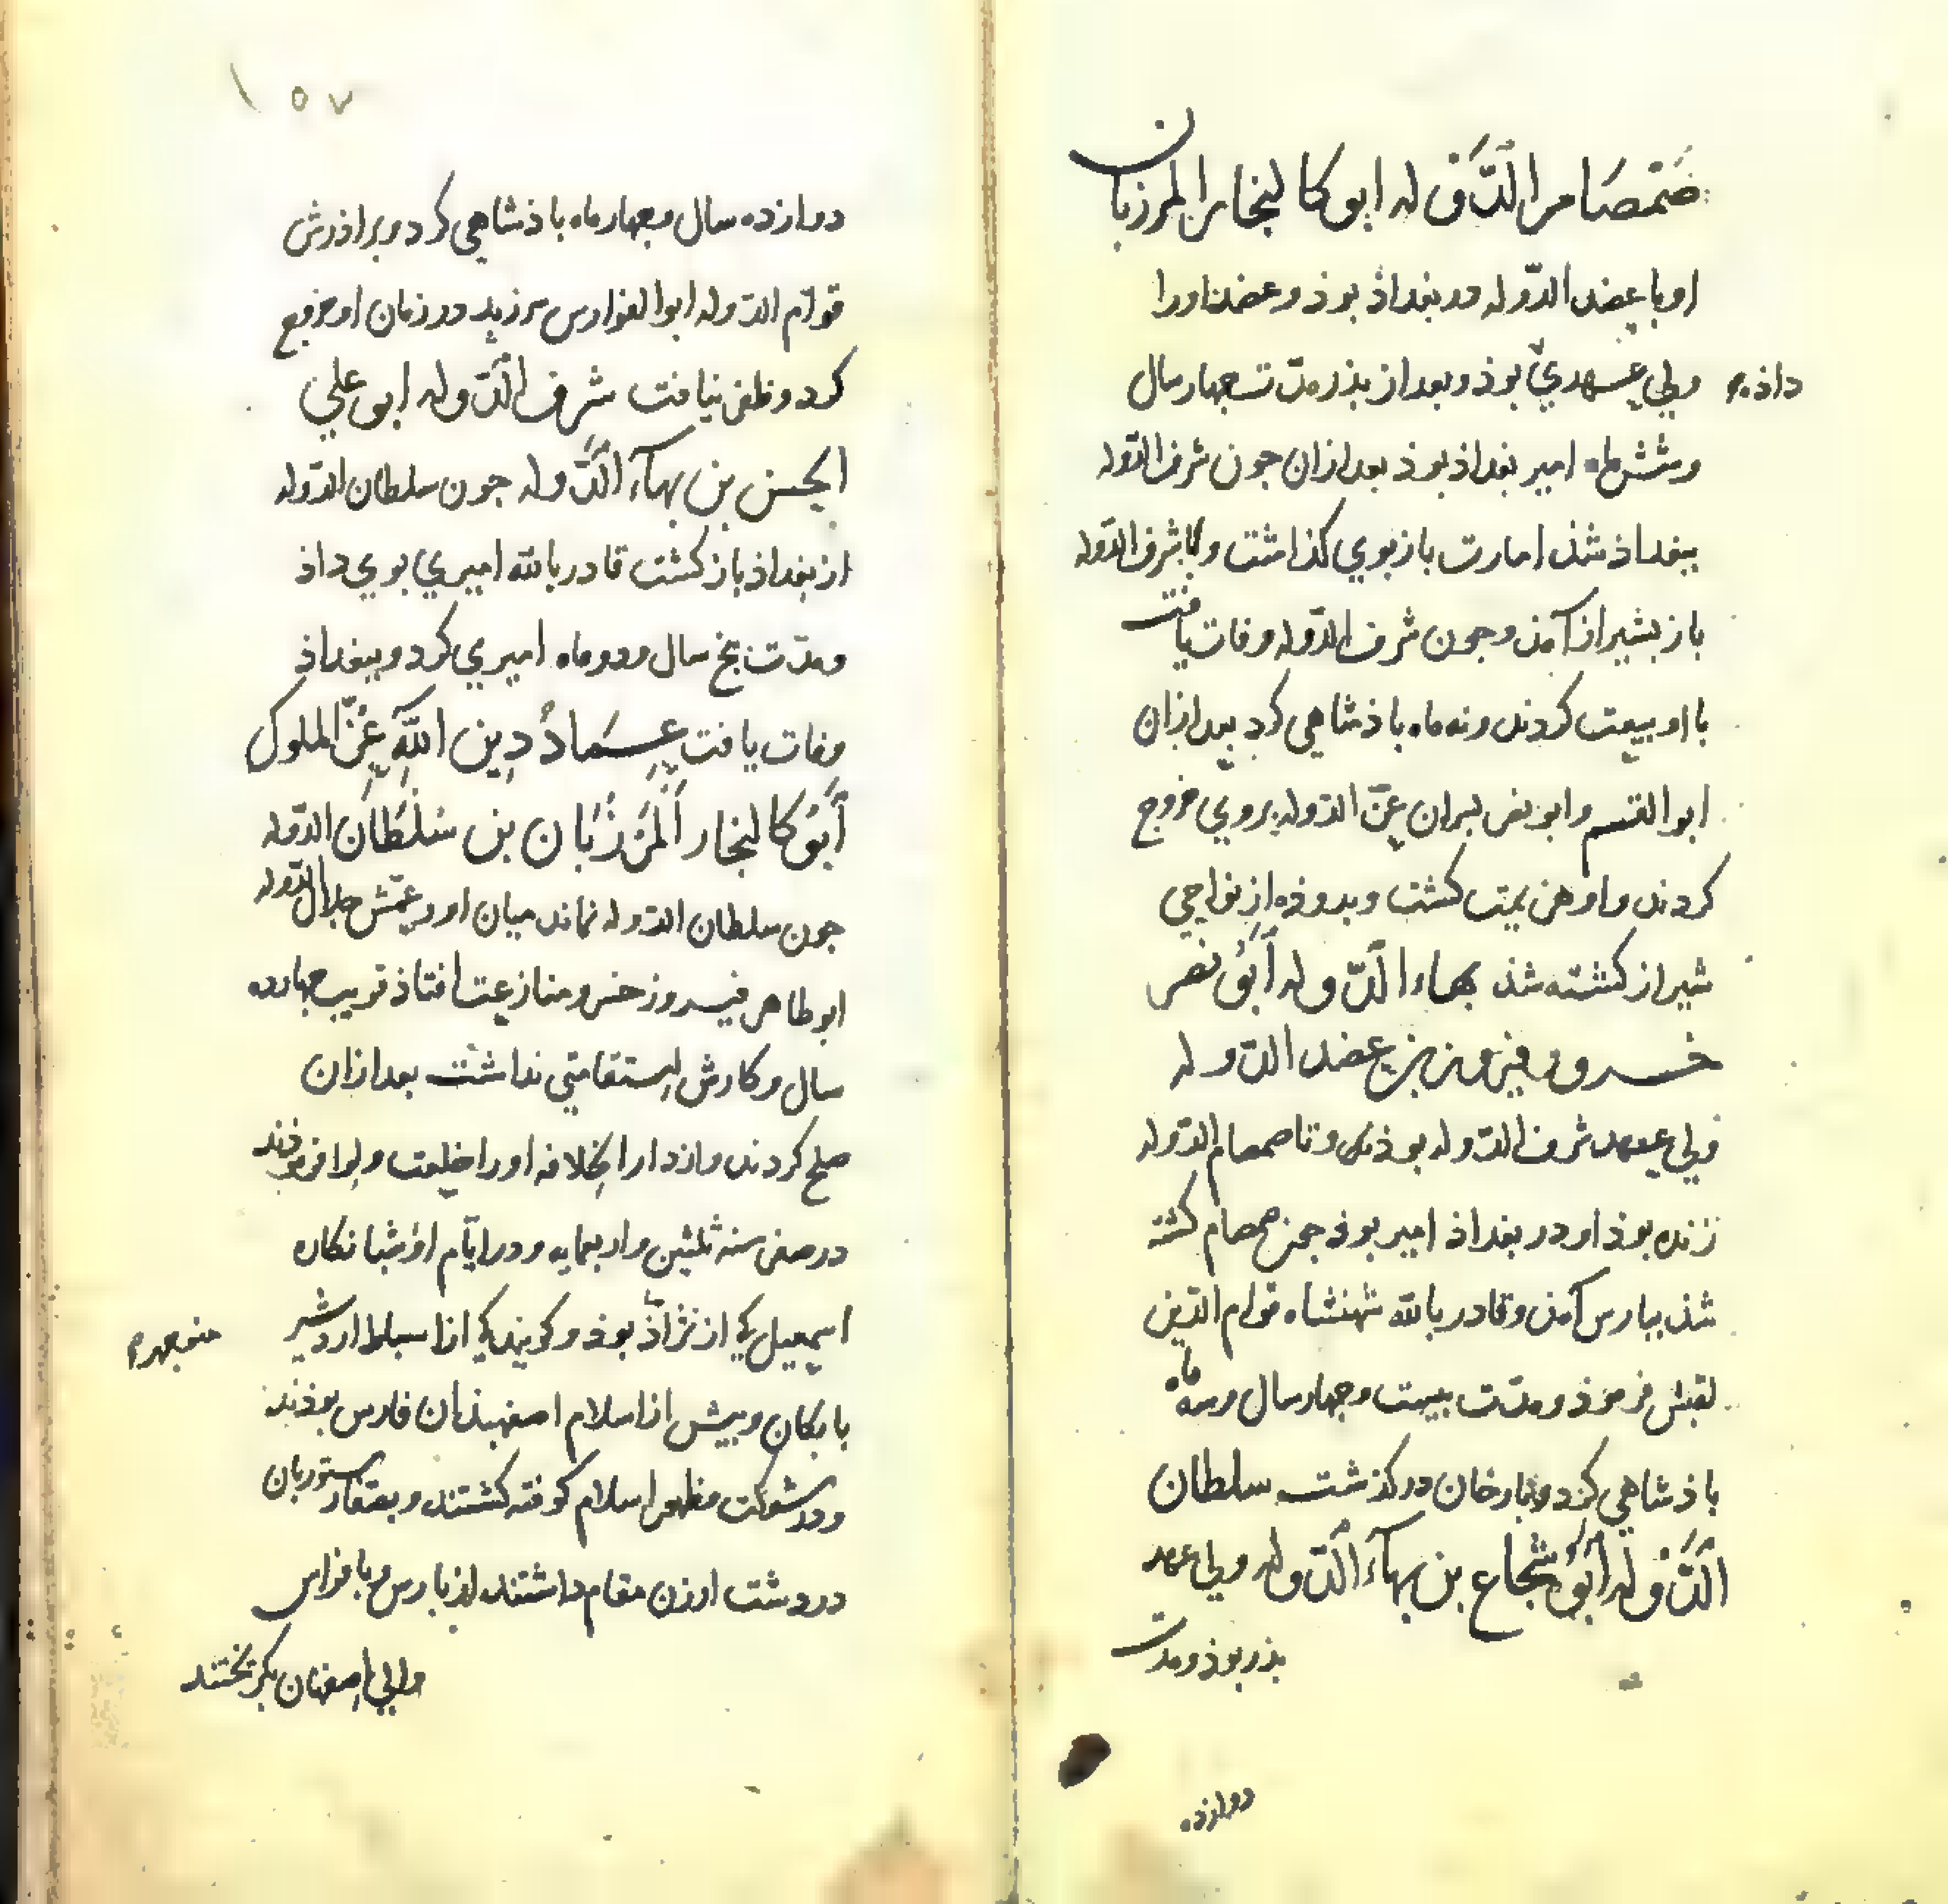 صَمْصَام الدَّوْله ابو كاليخار المرزبان
او با عضد الدّوله در بغداذ بوذ و عضد اورا
ولي عهدي بوذ و بعد از بذر مدّت جهار سال
داذه
و شش ماه امير بغداذ بوذ بعد ازان جون شرف الدّوله
ببغداذ شذ امارت باز بوي كذاشت و با شرف الدّوله
باز بشيراز آمذ و جون شرف الدّوله وفات يافت
با او بيعت كردند و نه ماه باذشاهي كرد بعد ازان
ابو القسم و ابو نصر بسران عزّ الدّوله بروي خروج
كردند و او هزيمت كشت و بدوذه از نواحي
شيراز كشته شذ بهاء الدّوله أبُو نصر
خسرو فيروز بن عضد الدّوله
ولي عهد شرف الدّوله بوذ و تا صمصام الدّوله
زنده بوذ او در بغداذ امير بوذ جون صمصام كشته
شذ ببارس آمذ و قادر بالله شهنشاه قوام الدّين
لقبش فرموذ و مدّت بيست و جهار سال و سه ماه
باذشاهي كرد و بارخان در كذشت سلطان
الدَّوْله أبُو شجاع بن بهآء الدّوله ولي عهد
بذر بوذ و مدّت
دوازده
١٥٧
دوازده سال و جهار ماه باذشاهي كرد و براذرش
قوام الدّوله ابو الفوارس در زمان او خروج
كرد و ظفر نيافت شرف الدَّوله ابو علي
الحسن بن بهآء الدَّوله جون سلطان الدّوله
از بغداذ باز كشت قادر بالله اميري بوي داذ
و مدّت بنج سال و دو ماه اميري كرد و ببغداذ
وفات يافت عِمادُ دِين اللهِ عِزّ الملوك
أبُو كاليخار المَرْزُبان بن سُلْطَان الدّوله
جون سلطان الدّوله نماند ميان او و عمّش جلال الدّوله
ابو طاهر فيروز خسرو منازعت افتاذ قريب جهارده
سال و كارش استقامتي نداشت بعد ازان
صلح كردند و از دار الخلافه او را خلعت و لوا فرموذند
در صفر سنه ثلثين و اربعمايه و در ايّام او شبانكاره
اسمعيل كي از نژاذ بوذ و كويند كي از اسباط اردشير
منوجهر
بابكان و بيش از اسلام اصفهبذان فارس بوذند
و در شوكت ظهور اسلام كوفته كشتند و ستوربان
در دشت اورزن مقام داشتند از بارس
والي اصفهان بكريختند